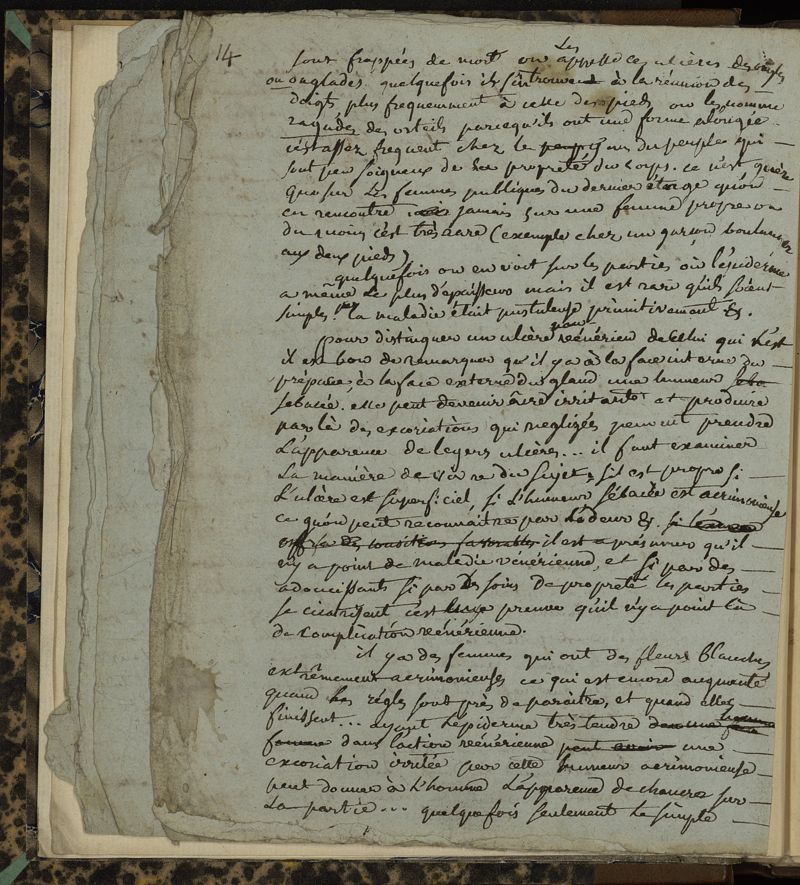 14
Les
sont frappées de mort on appelle ces ulcères des ongles
ou onglades. quelquefois ils se trouvent à la réunion des
doigts plus frequemment à celle des pieds on les nomme
ragades des orteils parcequ'ils ont une forme alongée.
c'est assez frequent chez le gens du peuple qui
sont peu soigneux de la propreté du corps. ce n'est guère
que sur les femmes publiques du dernier étage qu'on
en rencontre jamais sur une femme propre ou
du moins c'est très rare (exemple chez un garçon boulanger
aux deux pieds)
quelquefois on en voit sur les parties où l'epiderme
a même le plus d'epaisseur mais il est rare qu'ils soient
simples. la maladie était pustuleuse primitivement &.
pour distinguer un ulcère non vénérien de celui qui l'est
il est bon de remarquer qu'il y a à la face interne du
prépuce, à la face externe du gland, une humeur seba
sebacée. elle peut devenir âcre irritante et produire
par là des excoriations qui negligées peuvent prendre
l'apparence de legers ulcères... il faut examiner
la manière de vivre du sujet, s'il est propre si
l'ulcère est superficiel, si l'humeur sébacée est acrimonieuse
ce qu'on peut reconnaître par l'odeur &. si
il est a présumer qu'il
n'y a point de maladie vénérienne, et si par des
adoucissants si par des soins de propreté les parties
se cicatrisent c'est preuve qu'il n'y a point eu
de complication vénérienne.
il y a des femmes qui ont des fleurs blanches
extrêmement acrimonieuses ce qui est encore augmenté
quand les règles sont près de paraitre, et quand elles
finissent... ayant l'epiderme très tendre dans une
femme dans l'action vénérienne peut avoir une
excoriation irritée par cette humeur acrimonieuse
peut donner à l'homme l'apparence de chancres sur
la partie... quelquefois seulement le simple